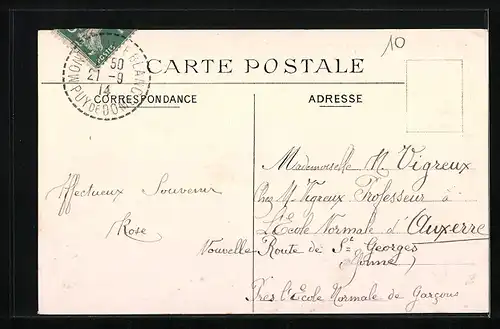 10
MONT BLANC
50
21 -9
14
PUY DE DOME
CARTE POSTALE
CORRESPONDANCE
ADRESSE
Affectueux Souvenir
Rose
Mademoiselle M. Vigreux
Chez M. Vigreux Professeur à
l'École Normale d'Auxerre
Nouvelle Route de St Georges
(Yonne)
Près l'École Normale de Garçons